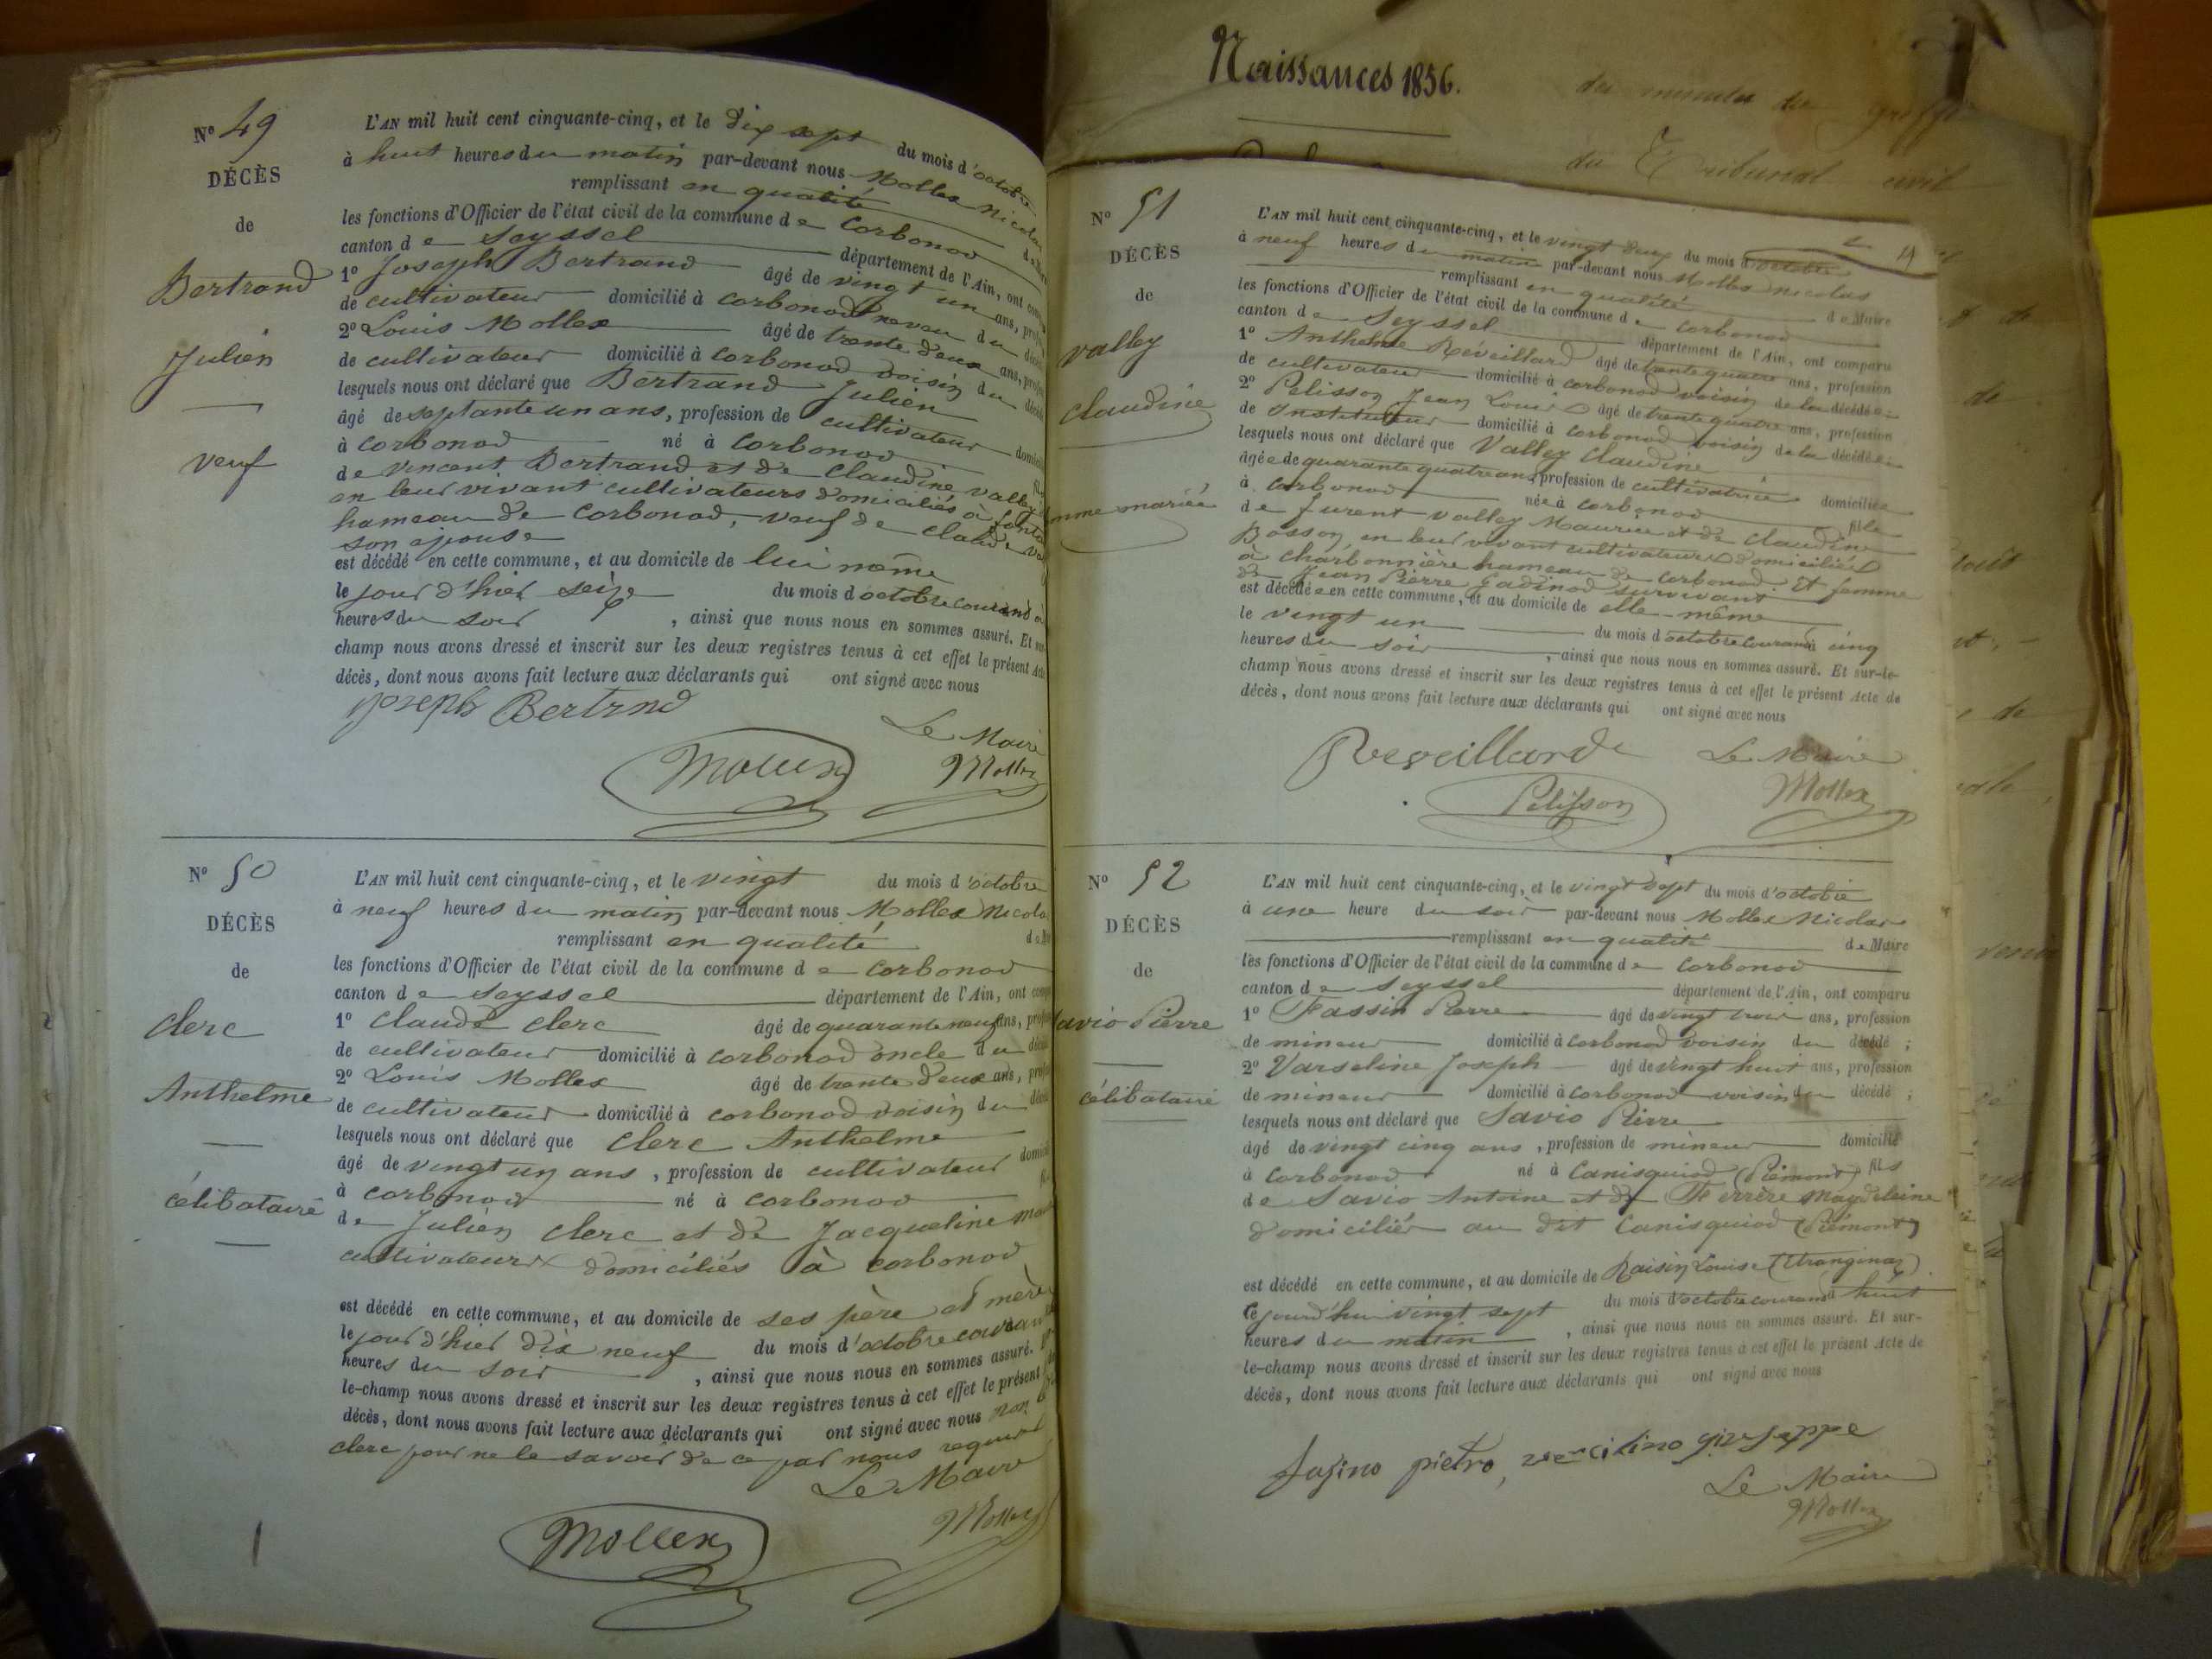 N° 49
DÉCÈS
de
Bertrand
Julien
veuf
L'AN mil huit cent cinquante-cinq, et le dix sept du mois d'octobre
à huit heures du matin par-devant nous Mollex Nicolas
remplissant en qualité de
les fonctions d'Officier de l'état civil de la commune de Corbonod
canton de Seyssel département de l'Ain, ont
1° Joseph Bertrand âgé de vingt un ans,
de cultivateur domicilié à Corbonod neveu du
2° Louis Mollex âgé de trente deux ans,
de cultivateur domicilié à Corbonod voisin du
lesquels nous ont déclaré que Bertrand Julien
âgé de septante un ans, profession de cultivateur
à Corbonod né à Corbonod
de Vincent Bertrand et de Claudine Valley
en leur vivant cultivateurs domiciliés à
hameau de Corbonod, veuf de
son épouse
est décédé en cette commune, et au domicile de lui même
le jour d'hier seize du mois d'octobre courant à
heures du soir, ainsi que nous nous en sommes assuré. Et
champ nous avons dressé et inscrit sur les deux registres tenus à cet effet le présent Acte
décès, dont nous avons fait lecture aux déclarants qui ont signé avec nous
joseph Bertrnd
Le Maire
Mollex
Mollex
N° 50
DÉCÈS
de
Clerc
Anthelme
célibataire
L'AN mil huit cent cinquante-cinq, et le vingt du mois d'octobre
à neuf heures du matin par-devant nous Mollex Nicolas
remplissant en qualité de
les fonctions d'Officier de l'état civil de la commune de Corbonod
canton de Seyssel département de l'Ain, ont
1° Claude Clerc âgé de quarante neuf ans,
de cultivateur domicilié à Corbonod oncle du
2° Louis Mollex âgé de trente deux ans,
de cultivateur domicilié à Corbonod voisin du
lesquels nous ont déclaré que Clerc Anthelme
âgé de vingt un ans, profession de cultivateur
à Corbonod né à Corbonod
de Julien Clerc et de Jacqueline
cultivateurs domiciliés à Corbonod
est décédé en cette commune, et au domicile de ses père et mère
le jour d'hier dix neuf du mois d'octobre courant
heures du soir, ainsi que nous nous en sommes assuré.
le-champ nous avons dressé et inscrit sur les deux registres tenus à cet effet le présent
décès, dont nous avons fait lecture aux déclarants qui ont signé avec nous non
Clerc pour ne le savoir de ce par nous requis
Le Maire
Mollex
Mollex
Naissances 1856.
des minutes du greffe
du Tribunal civil
19
N° 51
DÉCÈS
de
Valley
Claudine
mariée
L'AN mil huit cent cinquante-cinq, et le vingt deux du mois d'octobre
à neuf heures du matin par-devant nous Mollex Nicolas
remplissant en qualité de Maire
les fonctions d'Officier de l'état civil de la commune de Corbonod
canton de Seyssel département de l'Ain, ont comparu
1° Anthelme Réveillard âgé de trente quatre ans, profession
de cultivateur domicilié à Corbonod voisin de la décédée
2° Pelisson Jean Louis âgé de trente quatre ans, profession
de Instituteur domicilié à Corbonod voisin de la décédée
lesquels nous ont déclaré que Valley Claudine
âgée de quarante quatre ans, profession de cultivatrice domiciliée
à Corbonod née à Corbonod fille
de furent Valley Maurice et de Claudine
Bosson, en leur vivant cultivateurs domiciliés
à Charbonnière hameau de Corbonod. Et femme
de Jean Pierre Gadinod survivant
est décédée en cette commune, et au domicile de elle même
le vingt un du mois d'octobre courant à cinq
heures du soir, ainsi que nous nous en sommes assuré. Et sur-le-
champ nous avons dressé et inscrit sur les deux registres tenus à cet effet le présent Acte de
décès, dont nous avons fait lecture aux déclarants qui ont signé avec nous
Reveillard
Le Maire
Pelisson
Mollex
N° 52
DÉCÈS
de
Savio Pierre
célibataire
L'AN mil huit cent cinquante-cinq, et le vingt sept du mois d'octobre
à une heure du soir par-devant nous Mollex Nicolas
remplissant en qualité de Maire
les fonctions d'Officier de l'état civil de la commune de Corbonod
canton de Seyssel département de l'Ain, ont comparu
1° Fassin Pierre âgé de vingt trois ans, profession
de mineur domicilié à Corbonod voisin du décédé ;
2° Varseline Joseph âgé de vingt huit ans, profession
de mineur domicilié à Corbonod voisin du décédé ;
lesquels nous ont déclaré que Savio Pierre
âgé de vingt cinq ans, profession de mineur domicilié
à Corbonod né à Canisquiod (Piémont) fils
de Savio Antoine et de Ferrère Magdeleine
domiciliés au dit Canisquiod (Piémont)
est décédé en cette commune, et au domicile de Raisin Louise
Ce jourd'hui vingt sept du mois d'octobre courant à huit
heures du matin, ainsi que nous nous en sommes assuré. Et sur-
le-champ nous avons dressé et inscrit sur les deux registres tenus à cet effet le présent Acte de
décès, dont nous avons fait lecture aux déclarants qui ont signé avec nous
fasino pietro, vercilino giuseppe
Le Maire
Mollex